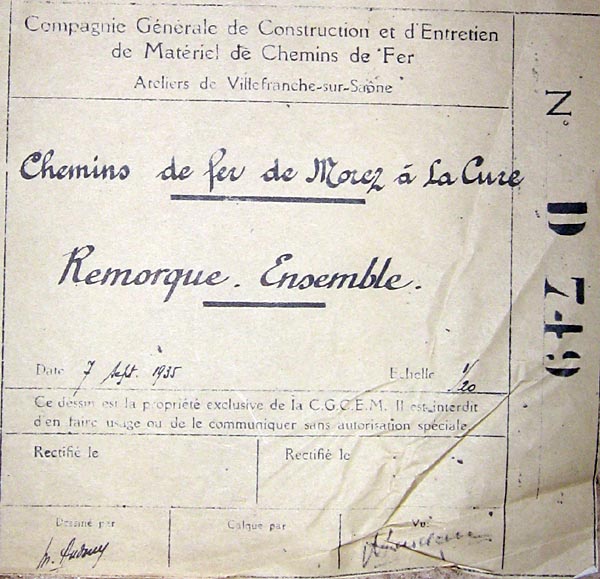 Compagnie Générale de Construction et d'Entretien
de Matériel de Chemins de Fer
Ateliers de Villefranche-sur-Saône
Chemins de fer de Morez à La Cure
Remorque. Ensemble.
Date 7 Sept. 1935 Echelle 1/20
Ce dessin est la propriété exclusive de la C.G.C.E.M. Il est interdit
d'en faire usage ou de le communiquer sans autorisation spéciale.
Rectifié le Rectifié le
Dessiné par Calque par Vu:
N° D 749